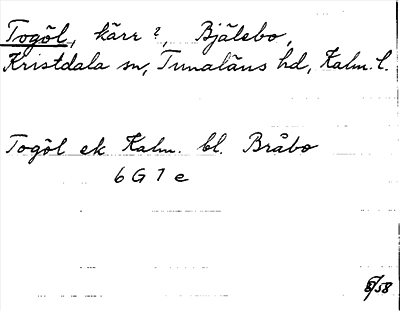 Togöl, kärr?, Bjälebo,
Kristdala sn, Tunaläns hd, Kalm. l.
Togöl ek Kalm. bl. Bråbo
6 G 7 e
/58